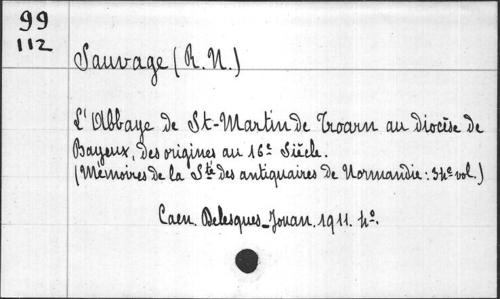 99
112
Sauvage (R. N.)
L'Abbaye de St-Martin de Troarn au diocèse de
Bayeux, des origines au 16e Siècle.
(Mémoires de la Sté des antiquaires de Normandie: 34e vol.)
Caen. Delesques-Jouan. 1911. 4o.